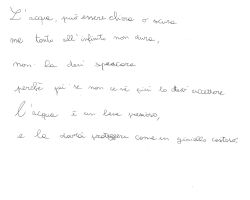 L'acqua, può essere chiara o scura
ma tanto all'infinito non dura,
non la devi sprecare
perché poi se non ce n'è più lo devi accettare
l'acqua è un bene prezioso,
e la dovrai proteggere come un gioiello costoso.